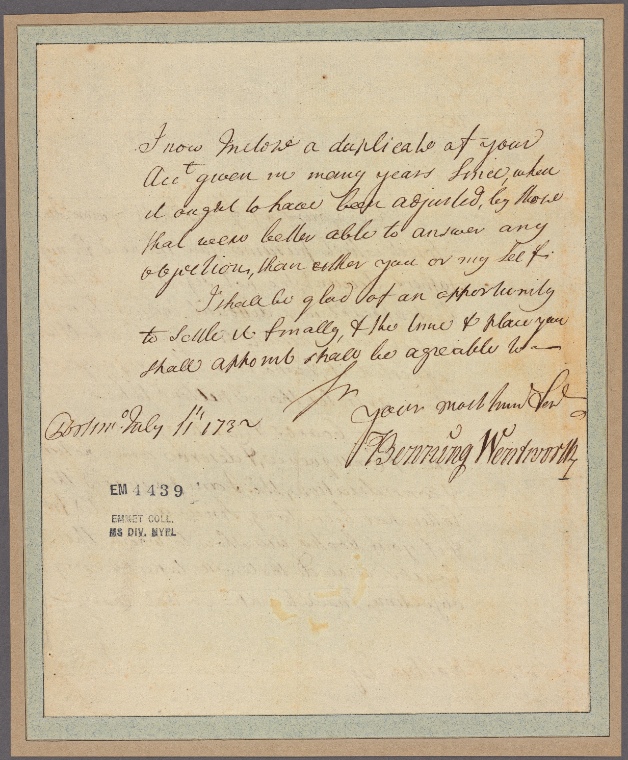 I now Inclose a duplicate of your
Acct given me many years Since, when
it ought to have been adjusted, by those
that were better able to answer any
objections, than either you or my Self.
I shall be glad of an opportunity
to Settle it finally, & the time & place you
shall appoint shall be agreable to
Sr
your most hum Serv
July 11 1732
Benning Wentworth
EM 4439
EMMET COLL.
MS DIV. NYPL